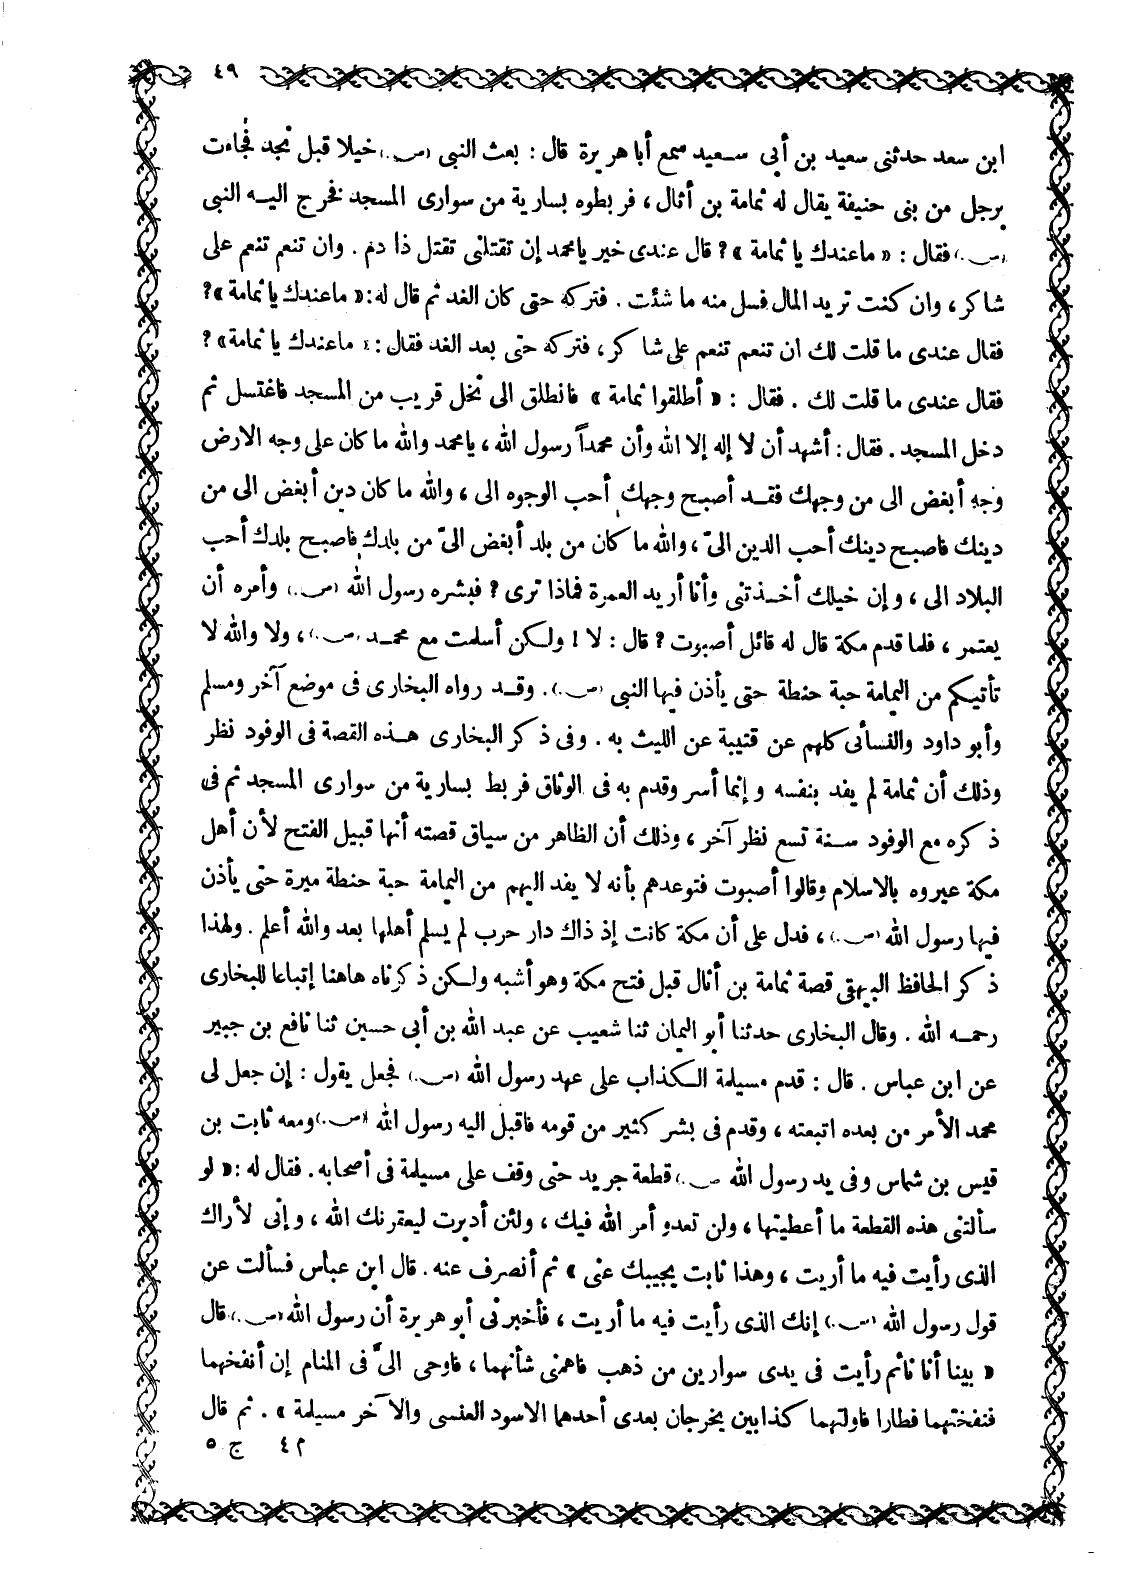 ٤٩
ابن سعد حدثنى سعيد بن أبى سعيد سمع أبا هريرة قال : بعث النبى (ص.) خيلا قبل نجد فجاءت
برجل من بنى حنيفة يقال له ثمامة بن أثال ، فربطوه بسارية من سوارى المسجد فخرج اليه النبى
(ص.) فقال : « ما عندك يا ثمامة » ? قال عندى خير يا محمد إن تقتلنى تقتل ذا دم . وان تنعم تنعم على
شاكر ، وان كنت تريد المال فسل منه ما شئت . فتركه حتى كان الغد ثم قال له : « ما عندك يا ثمامة » ?
فقال عندى ما قلت لك ان تنعم تنعم على شاكر ، فتركه حتى بعد الغد فقال : « ما عندك يا ثمامة » ?
فقال عندى ما قلت لك . فقال : « أطلقوا ثمامة » فانطلق الى نخل قريب من المسجد فاغتسل ثم
دخل المسجد . فقال : أشهد أن لا إله إلا الله وأن محمداً رسول الله ، يا محمد والله ما كان على وجه الارض
وجه أبغض الى من وجهك فقد أصبح وجهك أحب الوجوه الى ، والله ما كان دين أبغض الى من
دينك فاصبح دينك أحب الدين الىّ ، والله ما كان من بلد أبغض الىّ من بلدك فاصبح بلدك أحب
البلاد الى ، و إن خيلك أخذتنى وأنا أريد العمرة فماذا ترى ? فبشره رسول الله (ص.) وأمره أن
يعتمر ، فلما قدم مكة قال له قائل أصبوت ? قال : لا ! ولكن أسلمت مع محمد (ص.) ، ولا والله لا
تأتيكم من اليمامة حبة حنطة حتى يأذن فيها النبى (ص.) . وقد رواه البخارى فى موضع آخر ومسلم
وأبو داود والنسأنى كلهم عن قتيبة عن الليث به . وفى ذكر البخارى هذه القصة فى الوفود نظر
وذلك أن ثمامة لم يفد بنفسه وإنما أسر وقدم به فى الوثاق فربط بسارية من سوارى المسجد ثم فى
ذكره مع الوفود سنة تسع نظر آخر ، وذلك أن الظاهر من سياق قصته أنها قبيل الفتح لأن أهل
مكة عيروه بالاسلام وقالوا أصبوت فتوعدهم بأنه لا يفد اليهم من اليمامة حبة حنطة ميرة حتى يأذن
فيها رسول الله (ص.) ، فدل على أن مكة كانت إذ ذاك دار حرب لم يسلم أهلها بعد والله أعلم . ولهذا
ذكر الحافظ البيهقى قصة ثمامة بن أثال قبل فتح مكة وهو أشبه ولكن ذكرناه هاهنا إتباعا للبخارى
رحمه الله . وقال البخارى حدثنا أبو اليمان ثنا شعيب عن عبد الله بن أبى حسين ثنا نافع بن جبير
عن ابن عباس . قال : قدم مسيلمة الكذاب على عهد رسول الله (ص.) فجعل يقول : إن جعل لى
محمد الأمر من بعده اتبعته ، وقدم فى بشر كثير من قومه فاقبل اليه رسول الله (ص.) ومعه ثابت بن
قيس بن شماس وفى يد رسول الله (ص.) قطعة جريد حتى وقف على مسيلمة فى أصحابه . فقال له : « لو
سألتنى هذه القطعة ما أعطيتها ، ولن تعدو أمر الله فيك ، ولئن أدبرت ليعقرنك الله ، و إنى لأراك
الذى رأيت فيه ما أريت ، وهذا ثابت يجيبك عنى » ثم أنصرف عنه . قال ابن عباس فسألت عن
قول رسول الله (ص.) إنك الذى رأيت فيه ما أريت ، فأخبرنى أبو هريرة أن رسول الله (ص.) قال
« بينا أنا نائم رأيت فى يدى سوارين من ذهب فاهمنى شأنهما ، فاوحى الىّ فى المنام إن أنفخهما
فنفختهما فطارا فاولتهما كذابين يخرجان بعدى أحدهما الاسود العنسى والآخر مسيلمة » . ثم قال
م ٤ ج ٥